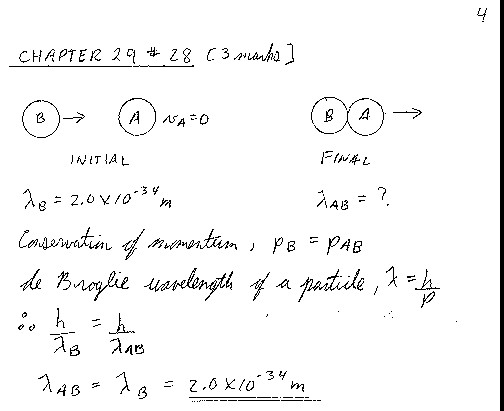 4
CHAPTER 29 # 28 [3 marks]
B → A v_A = 0 B A →
INITIAL FINAL
λ_B = 2.0 × 10^-34 m λ_AB = ?
Conservation of momentum, p_B = p_AB
de Broglie wavelength of a particle, λ = h/p
∴ h/λ_B = h/λ_AB
λ_AB = λ_B = 2.0 × 10^-34 m